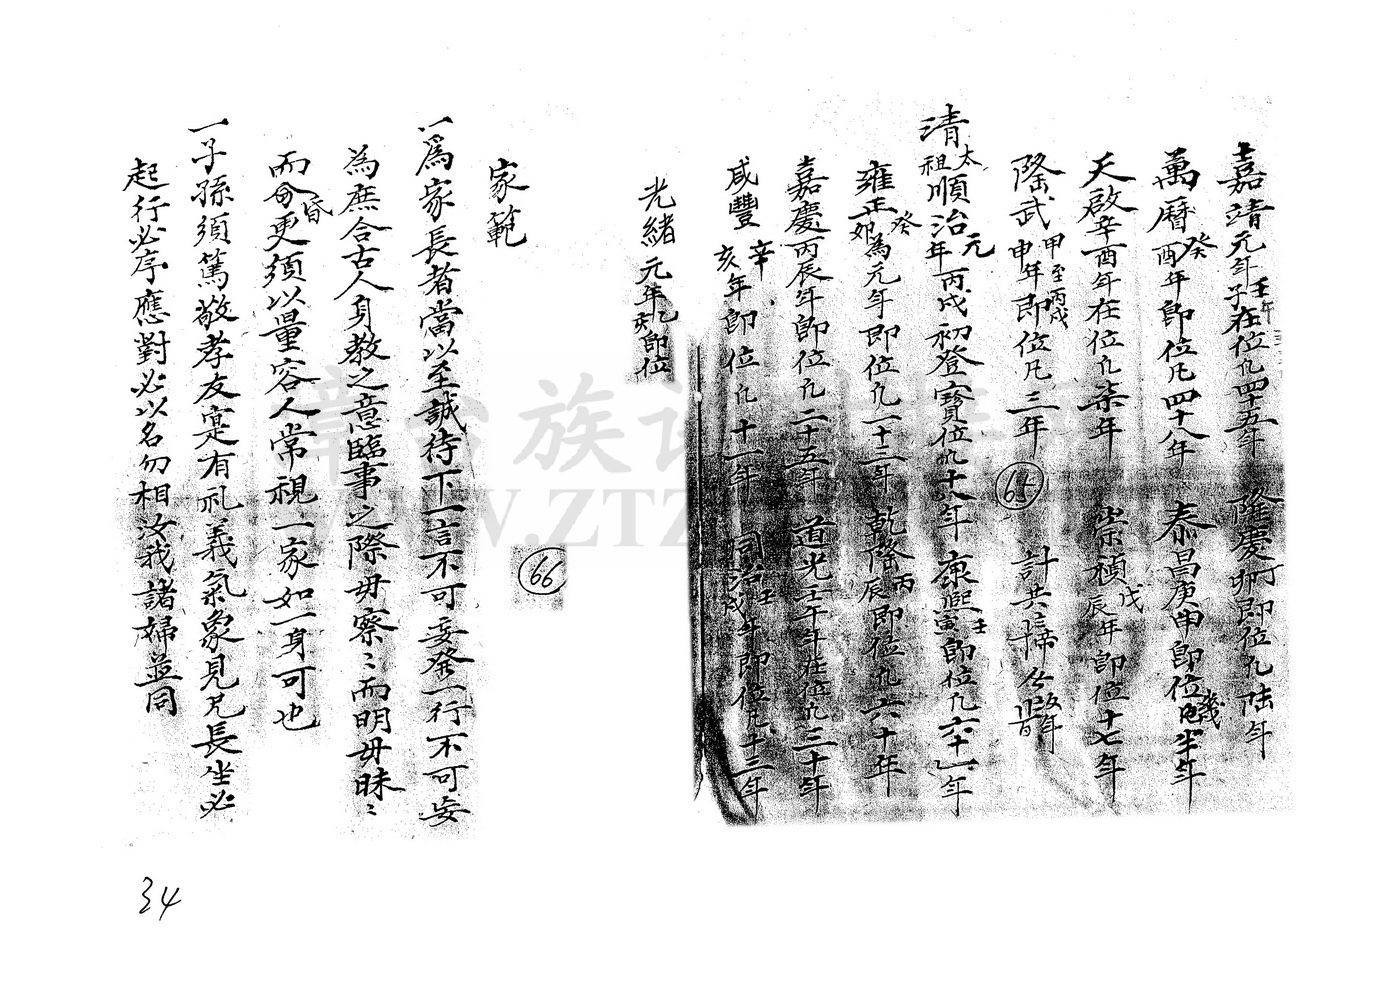 嘉靖元年壬午子在位凡四十五年 隆慶丁卯即位凡陆年
萬曆癸酉年即位凡四十八年 泰昌庚申即位幾半年
天啟辛酉年在位凡柒年 崇禎戊辰年即位十七年
隆武甲申年至丙戌即位凡三年 計共
65
清太祖順治元年丙戌初登寶位凡十八年 康熙壬寅即位凡六十一年
雍正癸卯為元年即位凡一十三年 乾隆丙辰即位凡六十年
嘉慶丙辰年即位凡二十五年 道光壬午年在位凡三十年
咸豐辛亥年即位凡十一年 同治壬戌年即位凡十三年
光緒元年乙亥即位
66
家範
一為家長者當以至誠待下一言不可妄發一行不可妄
為庶合古人身教之意臨事之際毋察〻而明毋昧〻
而昏命更須以量容人常視一家如一身可也
一子孫須篤敬孝友寔有礼義氣象見兄長坐必
起行必序應對必以名勿相汝我諸婦並同
34
章台族谱
WWW.ZTZ